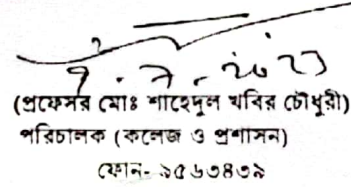 (প্রফেসর মোঃ শাহেদুল খবির চৌধুরী)
পরিচালক (কলেজ ও প্রশাসন)
ফোন- ৯৫৬৩৪৩৯